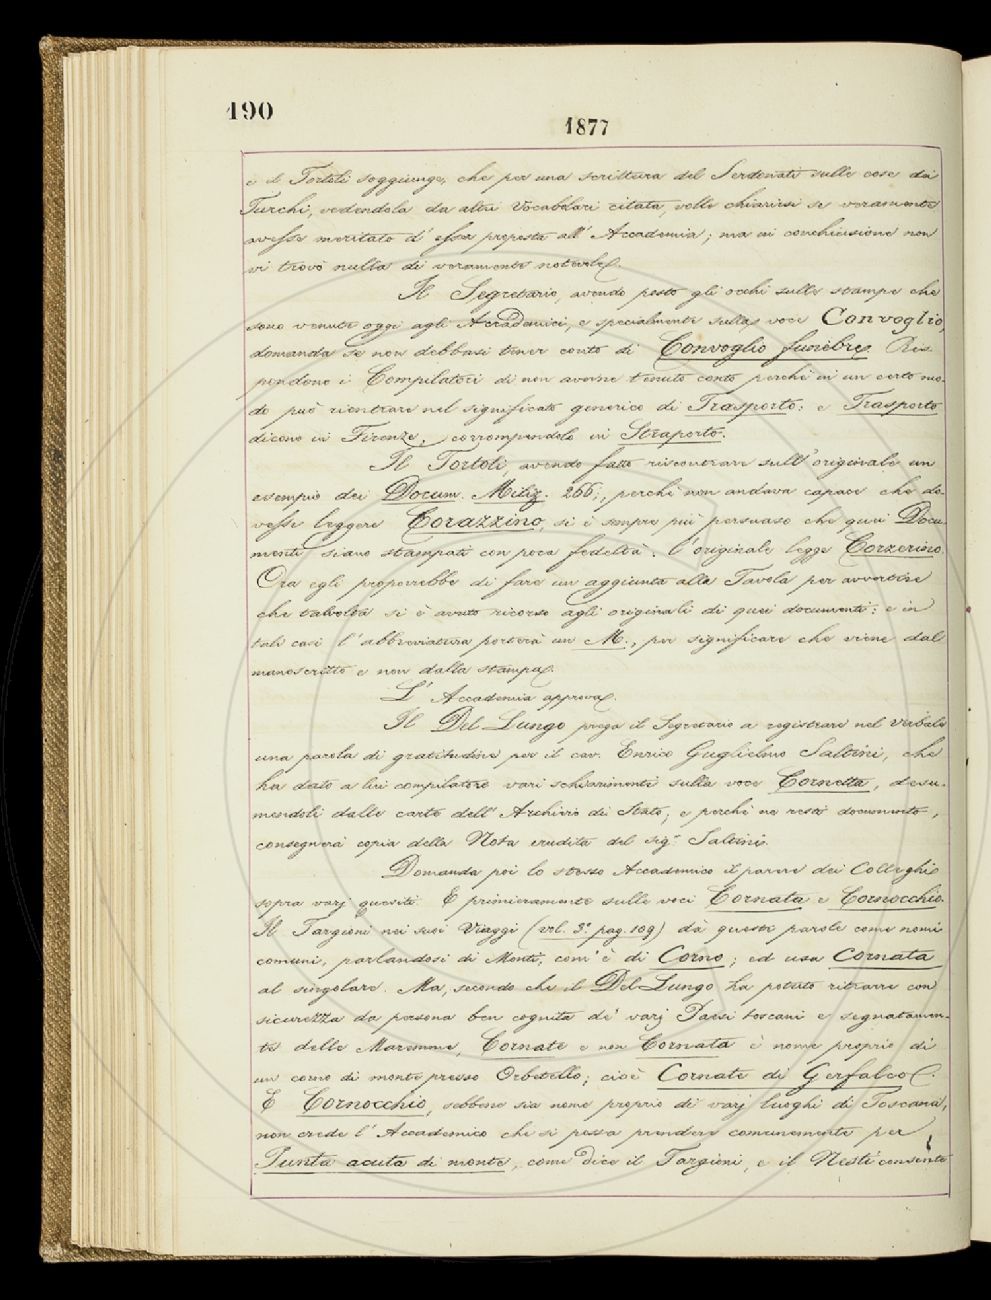 190
1877
e il Tortoli soggiunge, che per una scrittura del Serdonati sulle cose dei
Turchi, vedendola da altri Vocabolari citata, volle chiarirsi se veramente
avesse meritato d' essa proposta all' Accademia; ma in conchiusione non
vi trovò nulla di veramente notevole.
Il Segretario, avendo posto gli occhi sulle stampe che
sono venute oggi agli Accademici, e specialmente sulla voce Convoglio,
domanda se non debbasi tener conto di Convoglio funebre. Ris-
pondono i Compilatori di non averne tenuto conto perchè in un certo mo-
do può rientrare nel significato generico di Trasporto: e Trasporto
dicono in Firenze, corrompendolo in Straporto.
Il Tortoli, avendo fatto riscontrare sull' originale un
esempio dei Docum. Miliz. 266:, perchè non andava capace che do-
vesse leggere Corazzino, si è sempre più persuaso che quei Docu-
menti siano stampati con poca fedeltà: l' originale legge Corzerino.
Ora egli proporrebbe di fare un aggiunta alla Tavola per avvertire
che talvolta si è avuto ricorso agli originali di quei documenti: e in
tali casi l' abbreviatura porterà un M., per significare che viene dal
manoscritto e non dalla stampa.
L' Accademia approva.
Il Del Lungo prega il Segretario a registrare nel verbale
una parola di gratitudine per il cav. Enrico Guglielmo Saltini, che
ha dato a lui compilatore vari schiarimenti sulla voce Cornetta, desu-
mendoli dalle carte dell' Archivio di Stato; e perchè ne resti documento,
consegnerà copia della Nota erudita del sig.r Saltini.
Domanda poi lo stesso Accademico il parere dei Colleghi
sopra varj quesiti. E primieramente sulle voci Cornata e Cornocchio.
Il Targioni nei suoi Viaggi (vol. 3.° pag. 109) dà queste parole come nomi
comuni, parlandosi di Monti, com' è di Corno; ed usa Cornata
al singolare. Ma, secondo che il Del Lungo ha potuto ritrarre con
sicurezza da persona ben cognita de' varj Paesi toscani e segnatamen-
te delle Maremme, Cornate e non Cornata è nome proprio di
un corno di monte presso Orbetello; cioè Cornate di Gerfalco.
E Cornocchio, sebbene sia nome proprio di varj luoghi di Toscana,
non crede l' Accademico che si possa prendere comunemente per
Punta acuta di monte, come dice il Targioni, e il Nesti consente